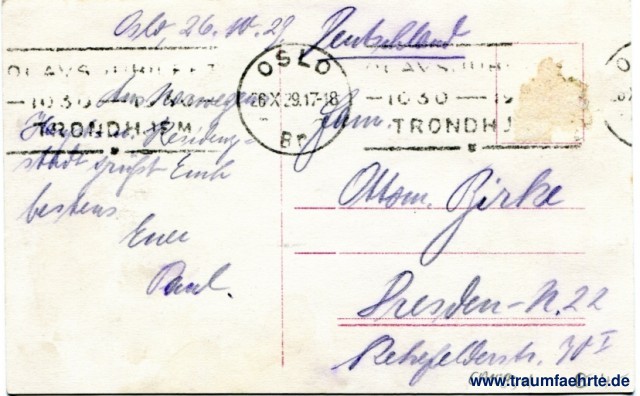 Oslo, 26.10.29
Deutschland
OSLO
26 X 29.17-18
Br
OLAVSJUBILEET
-1030-
TRONDHJEM
-1030-19
TRONDHJ
Aus Norwegens
Haupt- u. Residenz-
stadt grüßt Euch
bestens
Euer
Paul.
Fam.
Ottom. Birke
Dresden-N. 22
Rehefelderstr. 70 I
www.traumfaehrte.de